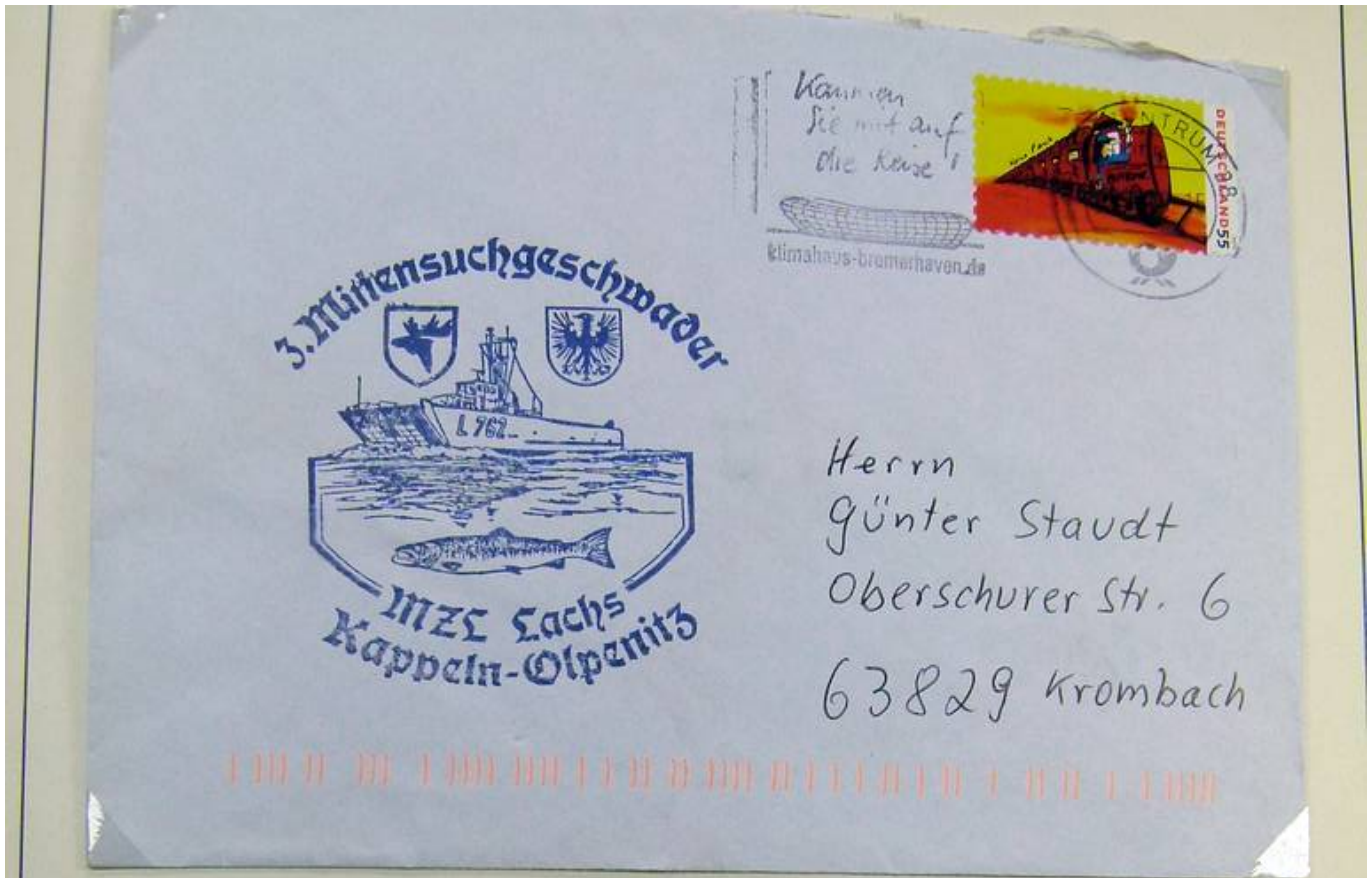 Kommen
Sie mit auf
die Reise!
klimahaus-bremerhaven.de
ZENTRUM 28
DEUTSCHLAND 55
3. Minensuchgeschwader
L 762
MZL Lachs
Kappeln-Olpenitz
Herrn
Günter Staudt
Oberschurer Str. 6
63829 Krombach